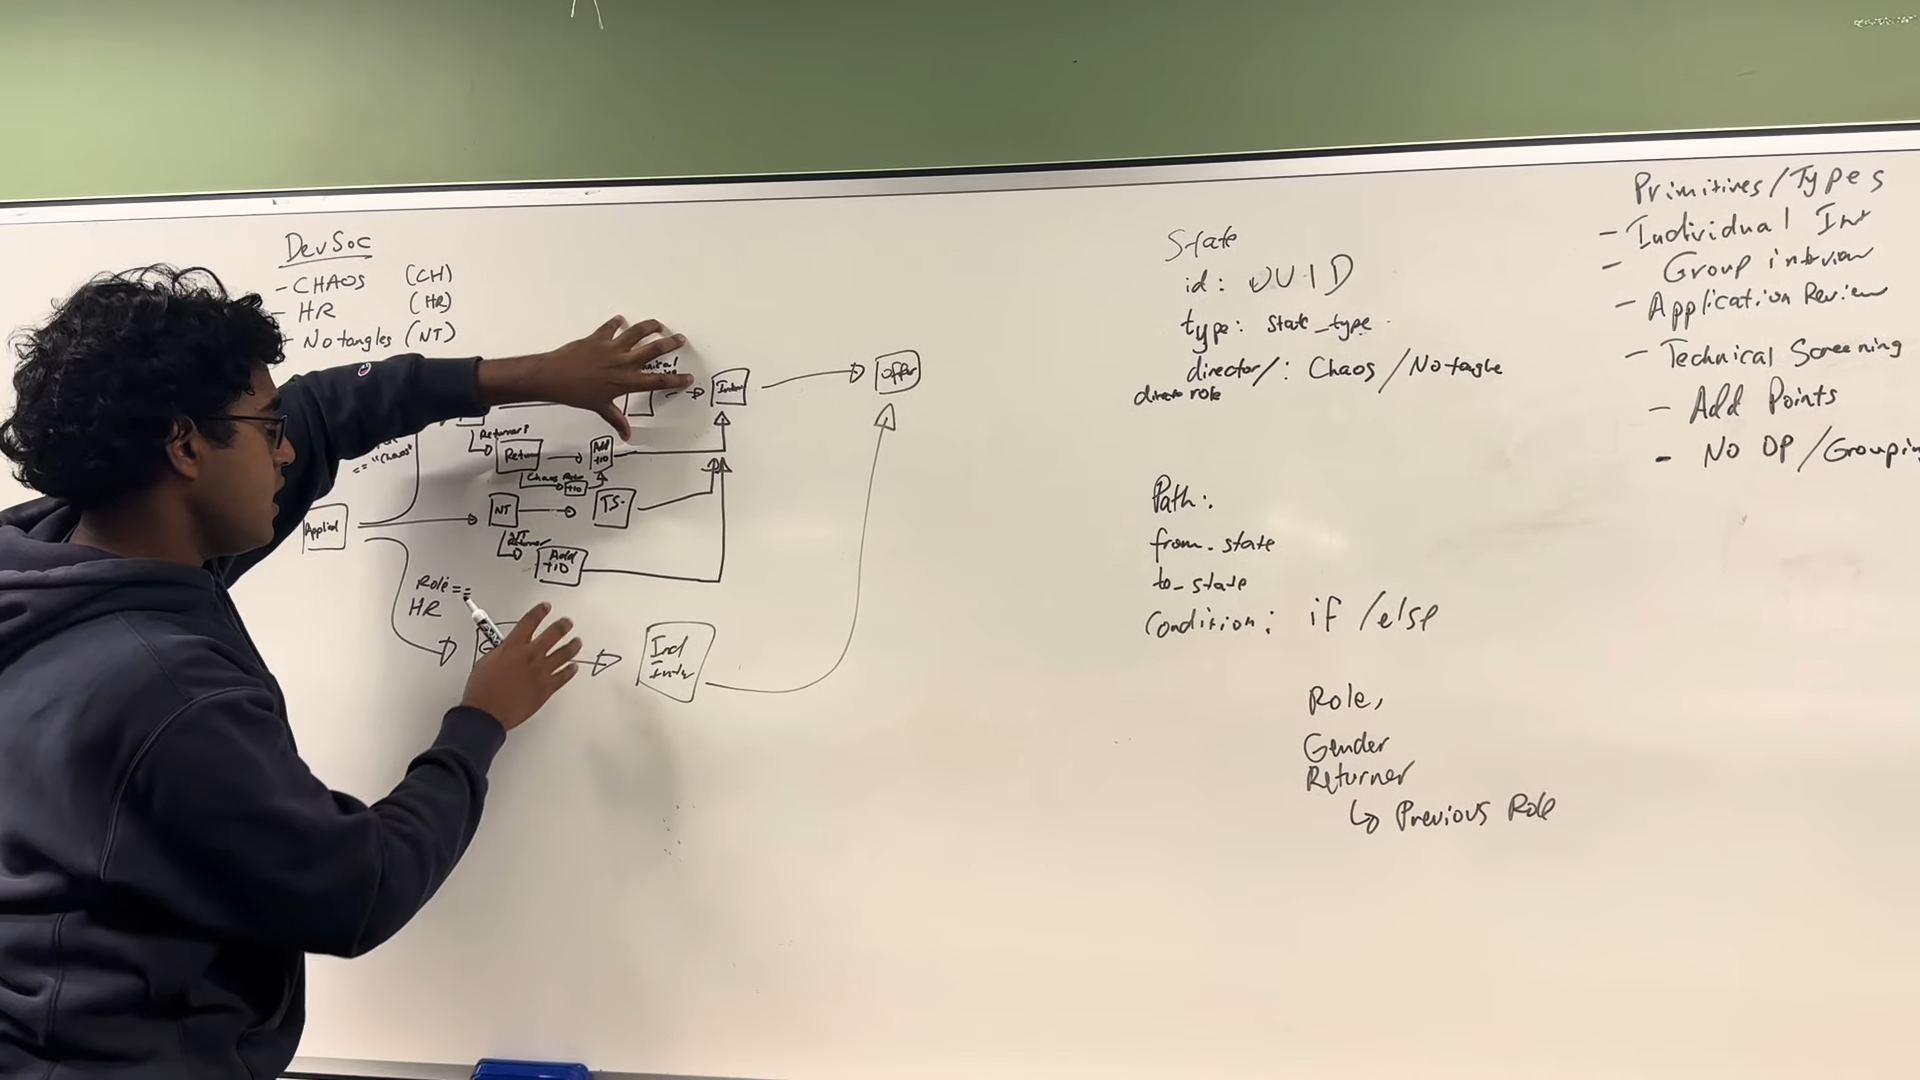 DevSoc
- CHAOS (CH)
- HR (HR)
- Notangles (NT)
== "Chaos"
Applied
Returner?
Return
Add
+10
Chaos Role
+10
NT
TS.
NT
Returner
Add
+10
Role ==
HR
Ind
Offer
State
id: UUID
type: state_type
director/: Chaos/Notangle
director role
Path:
from_state
to_state
Condition: if/else
Role,
Gender
Returner
↳ Previous Role
Primitives/Types
- Individual Int
- Group interview
- Application Review
- Technical Screening
- Add Points
- No OP/Groupin